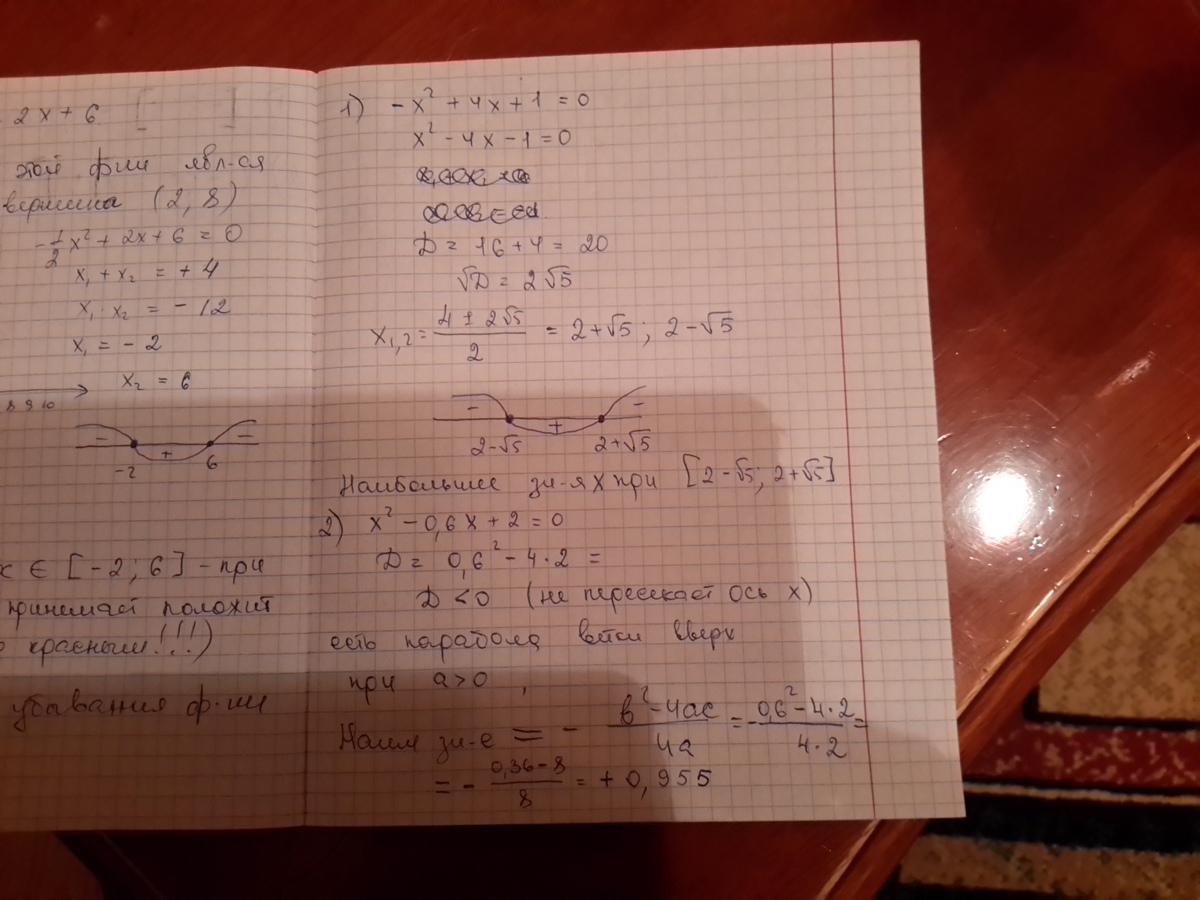 2x + 6
этой фии явл-ся
вершина (2, 8)
-1/2 x² + 2x + 6 = 0
x₁ + x₂ = + 4
x₁ · x₂ = - 12
x₁ = - 2
x₂ = 6
8 9 10
- + -
-2 6
x ∈ [-2; 6] - при
принимает положит
красным!!!)
убывания ф-ии
1) -x² + 4x + 1 = 0
x² - 4x - 1 = 0
D = 16 + 4 = 20
√D = 2√5
x₁,₂ = (4 ± 2√5)/2 = 2+√5; 2-√5
- + -
2-√5 2+√5
Наибольшее зн-я x при [2-√5; 2+√5]
2) x² - 0,6x + 2 = 0
D = 0,6² - 4·2 =
D < 0 (не пересекает ось x)
есть парабола ветви вверх
при a>0 ,
Наим зн-е = - (в²-4ас)/4а = - (0,6²-4·2)/(4·2) =
= - (0,36-8)/8 = + 0,955